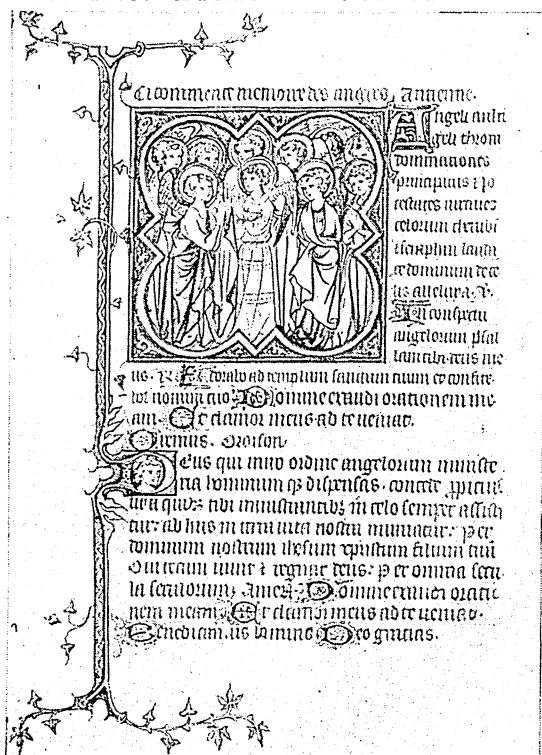 Ci commence memoire des angles. Antienne.
Angeli archan
geli throni
dominationes
principatus z po
testates virtutes
celorum cherubi
z seraphin lauda
te dominum de ce
lis alleluya. V.
In conspectu
angelorum psal
lam tibi deus me
us. R. Adorabo ad templum sanctum tuum et confite
bor nomini tuo. Domine exaudi orationem me
am. Et clamor meus ad te veniat.
Oremus. Oroison.
Deus qui miro ordine angelorum ministe
ria hominum qz dispensas. concede
ut a quibz tibi ministrantibz in celo semper assisti
tur: ab hiis in terra vita nostra muniatur. Per
dominum nostrum ihesum xpistum filium tuum
Qui tecum vivit z regnat deus. Per omnia secu
la seculorum. Amen. Domine exaudi oratio
nem meam. Et clamor meus ad te veniat.
Benedicamus domino. Deo gracias.